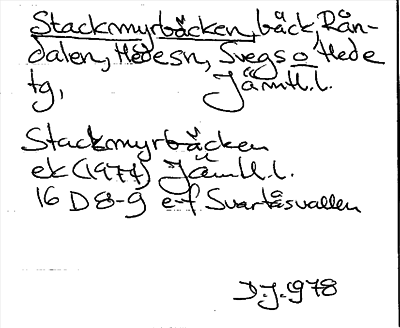 Stackmyrbäcken, bäck Rån-
dalen, Hedesn, Svegs o Hede
tg, Jämtl.l.
Stackmyrbäcken
ek (1974) Jämtl.l.
16 D 8-9 e-f Svartåsvallen
D.J. 1978